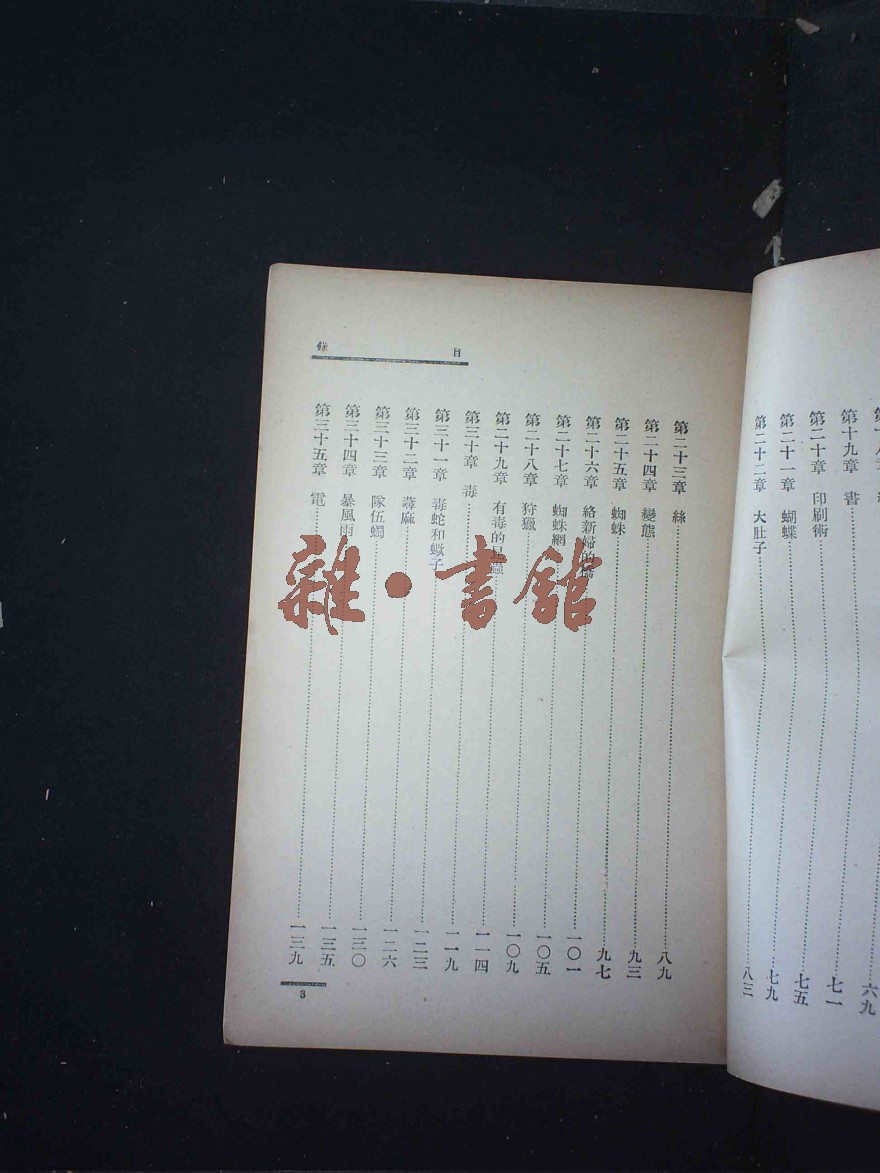 第十九章 書 六九
第二十章 印刷術 七一
第二十一章 蝴蝶 七五
第二十二章 大肚子 七九
八三
目錄
第二十三章 絲 八九
第二十四章 變態 九三
第二十五章 蜘蛛 九七
第二十六章 絡新婦的橋 一〇一
第二十七章 蜘蛛網 一〇五
第二十八章 狩獵 一〇九
第二十九章 有毒的昆蟲 一一四
第三十章 毒 一一九
第三十一章 毒蛇和蠍子 一二三
第三十二章 蕁麻 一二六
第三十三章 隊伍蠋 一三〇
第三十四章 暴風雨 一三五
第三十五章 電 一三九
3
雜·書館